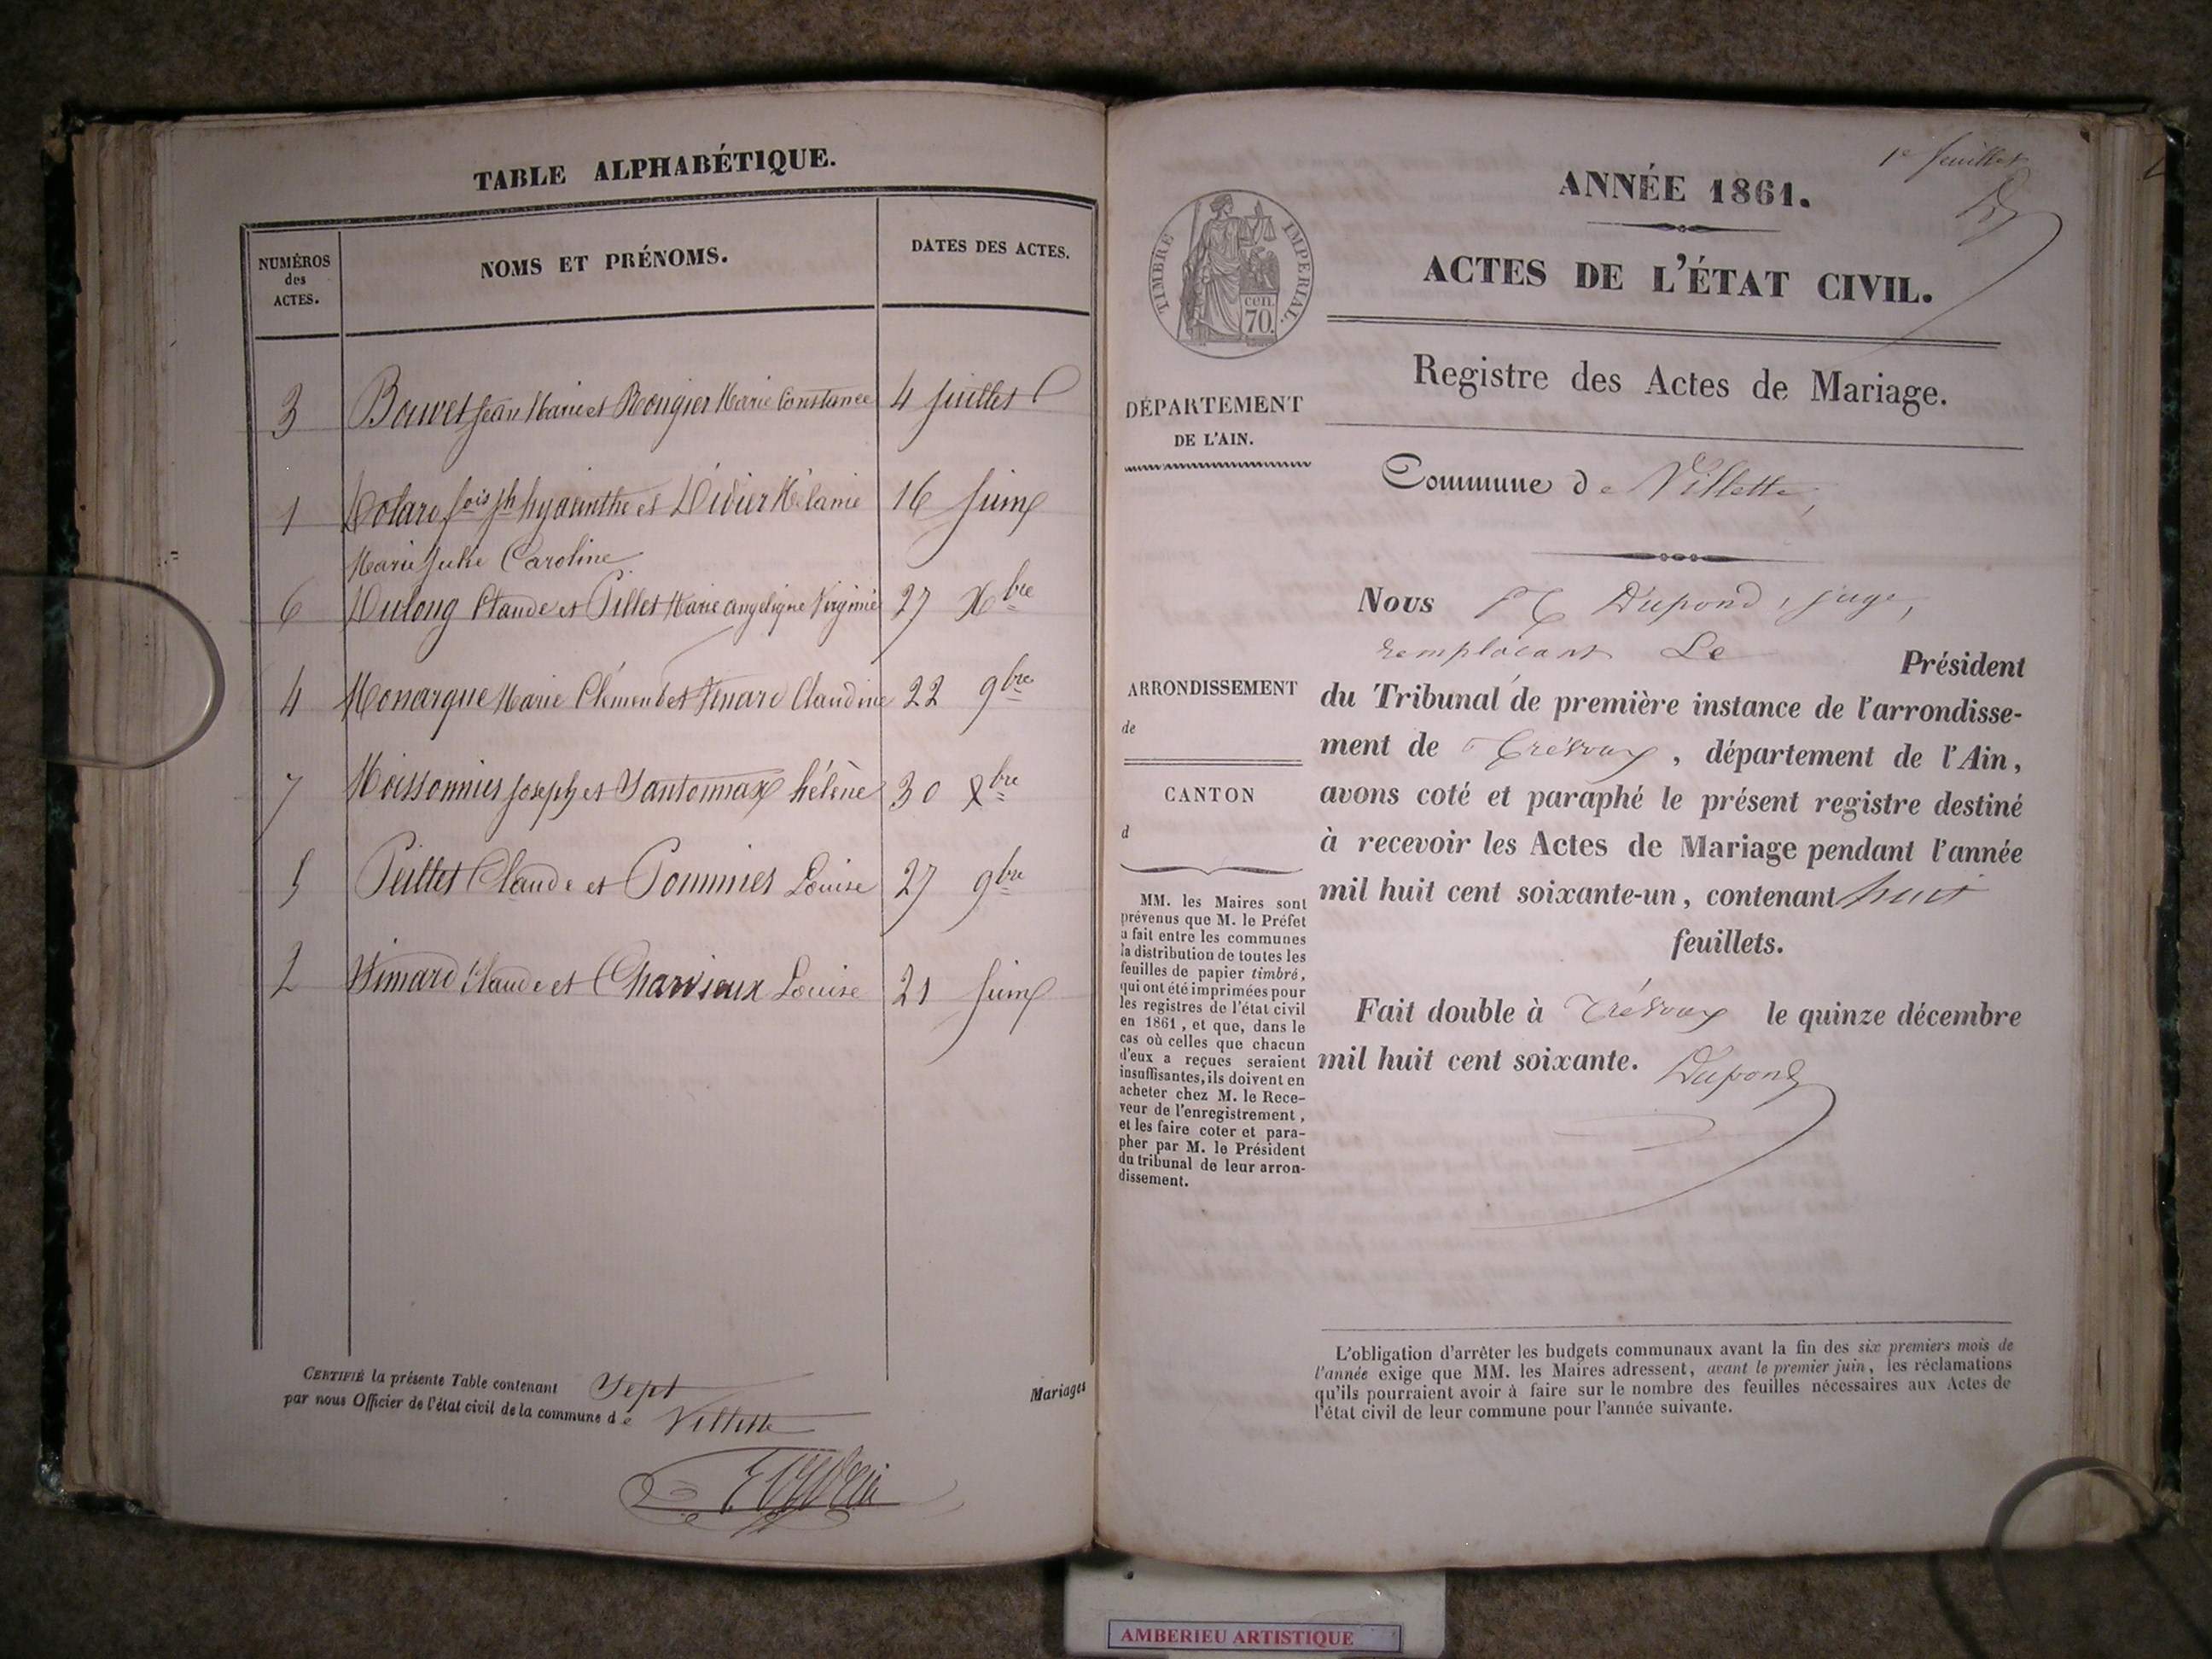 TABLE ALPHABÉTIQUE.
NUMÉROS
des
ACTES.
NOMS ET PRÉNOMS.
DATES DES ACTES.
3 Bouvet Jean Marie et Rougier Marie Constance 4 juillet
1 Dolard fois jh hyacinthe et Didier Mélanie 16 juin
Marie Julie Caroline
6 Dulong Claude et Pillet Marie angelique Virginie 27 Xbre
4 Monarque Marie Clément et Venard Claudine 22 9bre
7 Moissonnier Joseph et Santonnax hélène 30 Xbre
5 Peillet Claude et Pommier Louise 27 9bre
2 Simard Claude et Charvieux Louise 21 juin
CERTIFIÉ la présente Table contenant Sept Mariages
par nous Officier de l'état civil de la commune de Villette
1e feuillet
ANNÉE 1861.
ACTES DE L'ÉTAT CIVIL.
TIMBRE IMPERIAL.
cen.
70.
Registre des Actes de Mariage.
DÉPARTEMENT
DE L'AIN.
Commune de Villette,
Nous Dupond, juge,
remplaçant Le Président
du Tribunal de première instance de l'arrondisse-
ment de Trévoux, département de l'Ain,
avons coté et paraphé le présent registre destiné
à recevoir les Actes de Mariage pendant l'année
mil huit cent soixante-un, contenant huit
feuillets.
Fait double à Trévoux le quinze décembre
mil huit cent soixante.
Dupond
ARRONDISSEMENT
de
CANTON
d
MM. les Maires sont
prévenus que M. le Préfet
a fait entre les communes
la distribution de toutes les
feuilles de papier timbré,
qui ont été imprimées pour
les registres de l'état civil
en 1861, et que, dans le
cas où celles que chacun
d'eux a reçues seraient
insuffisantes, ils doivent en
acheter chez M. le Rece-
veur de l'enregistrement,
et les faire coter et para-
pher par M. le Président
du tribunal de leur arron-
dissement.
L'obligation d'arrêter les budgets communaux avant la fin des six premiers mois de
l'année exige que MM. les Maires adressent, avant le premier juin, les réclamations
qu'ils pourraient avoir à faire sur le nombre des feuilles nécessaires aux Actes de
l'état civil de leur commune pour l'année suivante.
AMBERIEU ARTISTIQUE